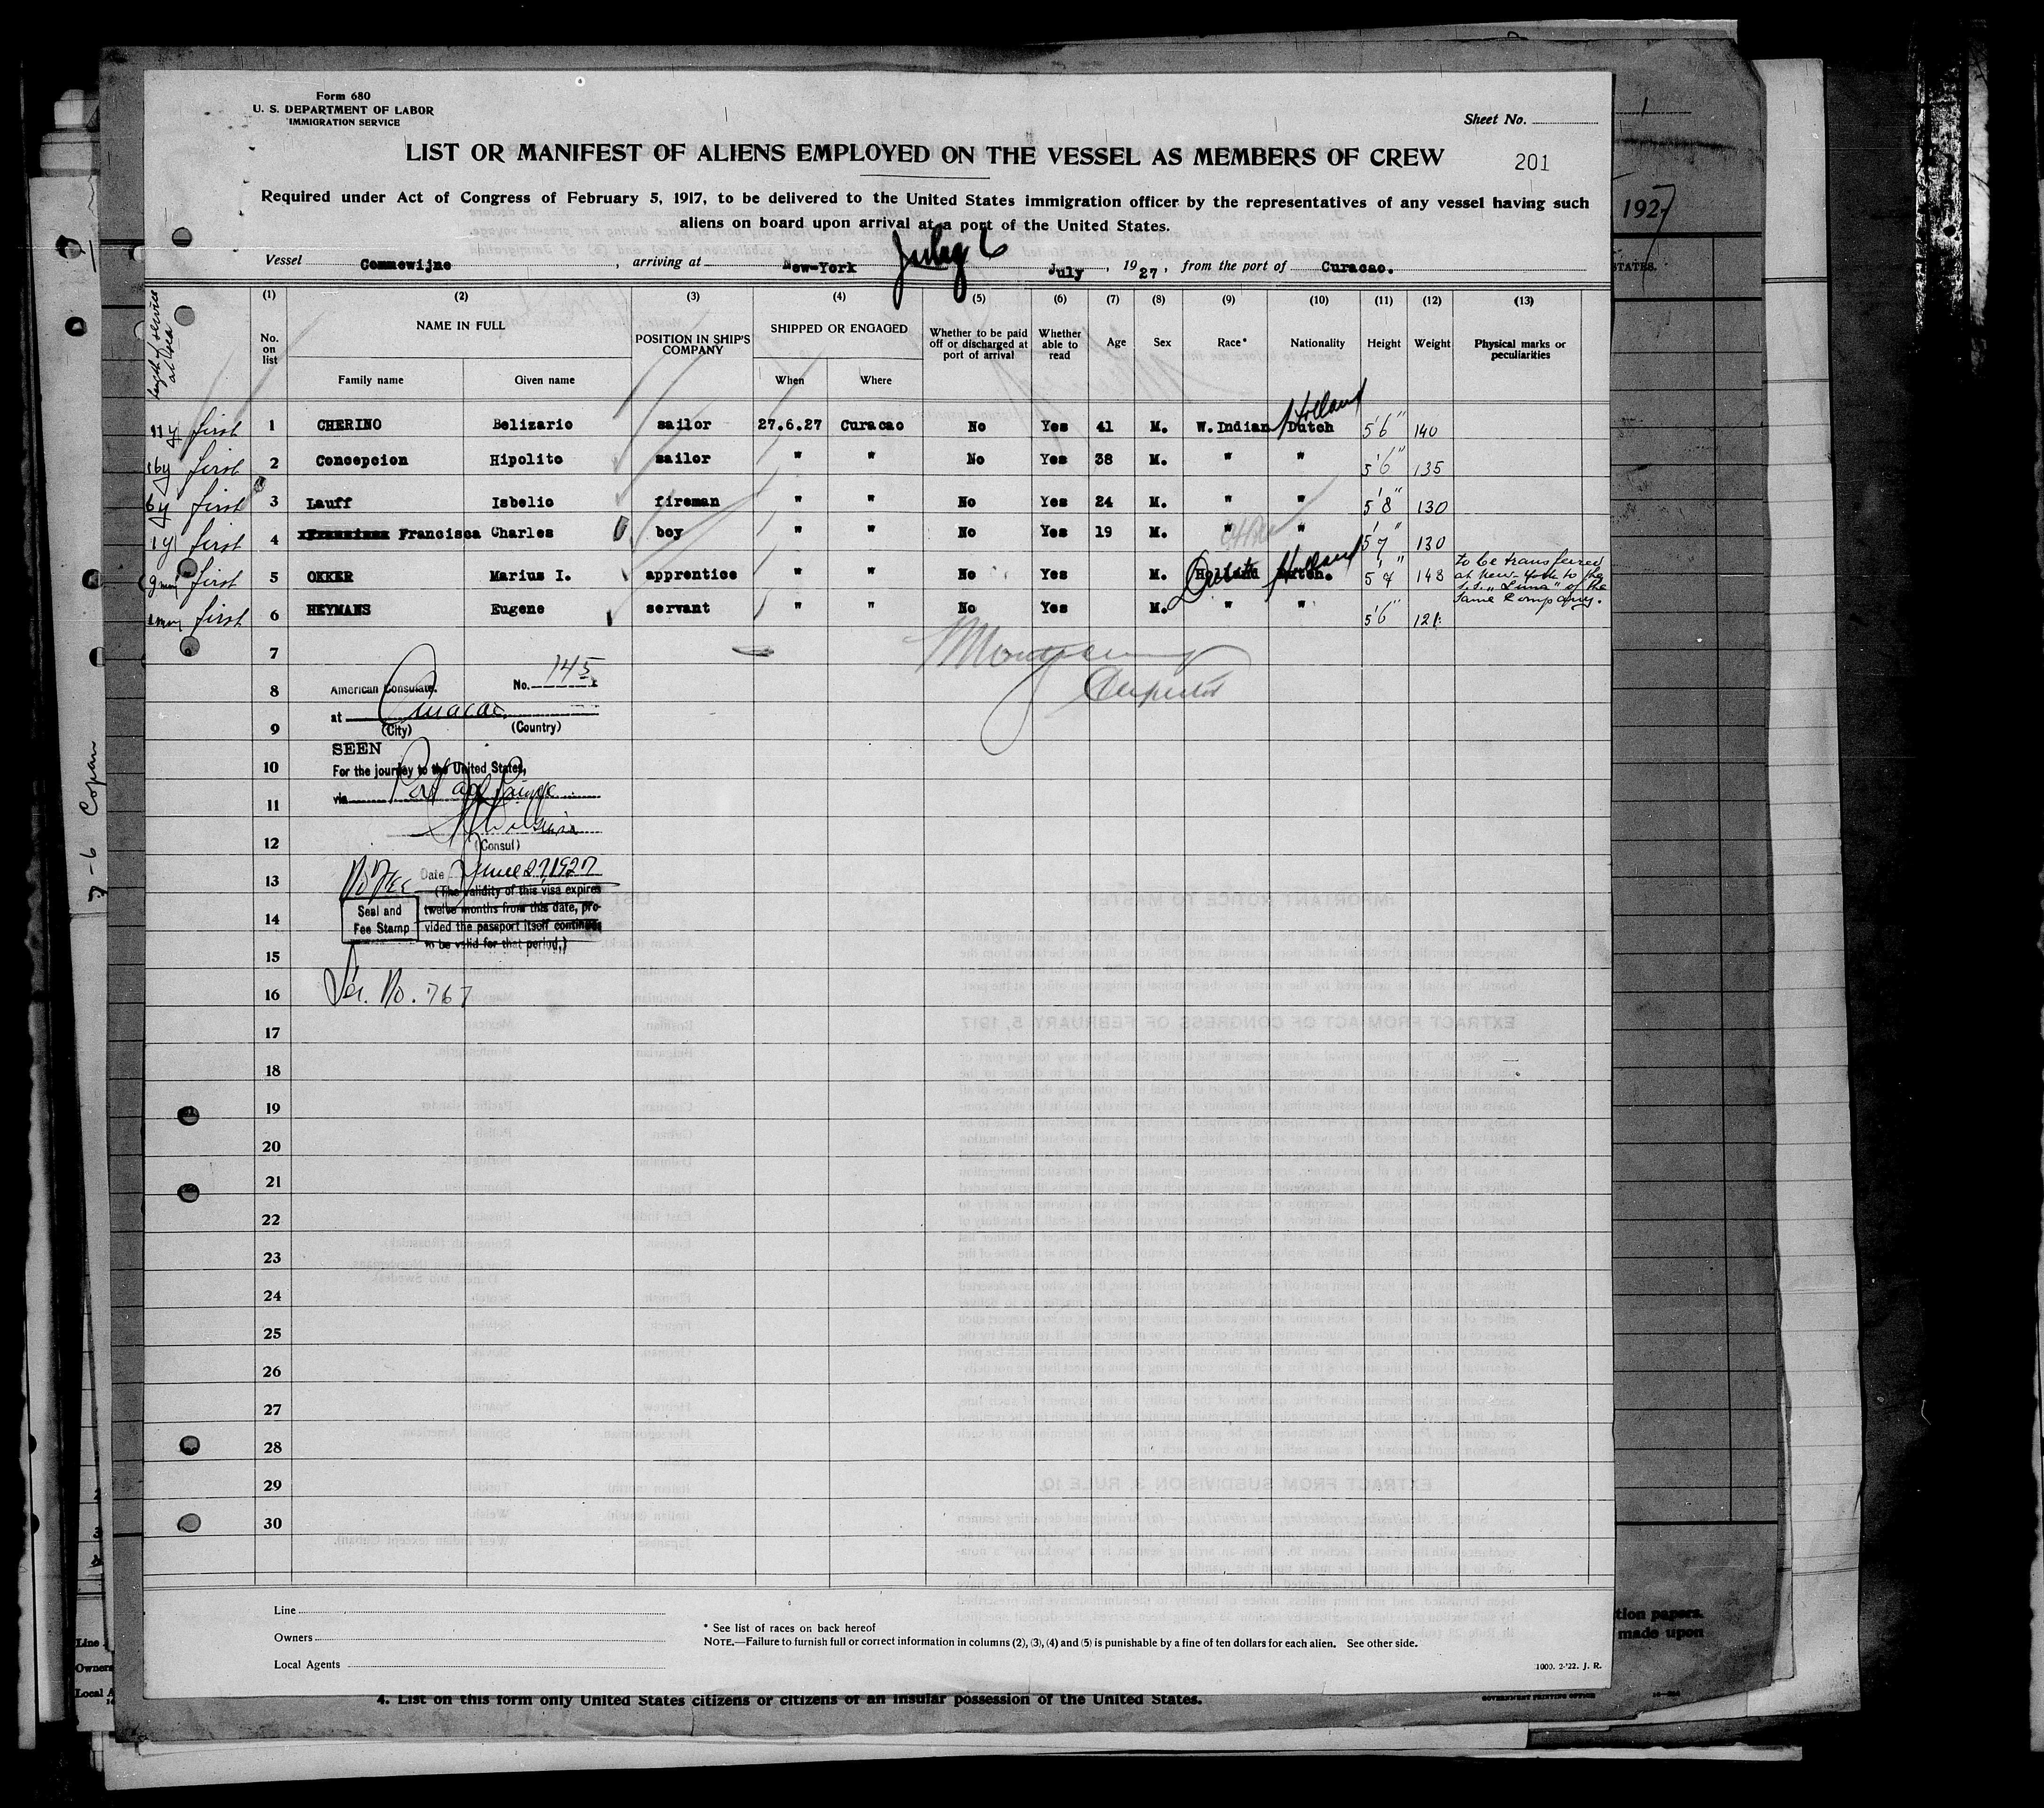 Form 680
U. S. DEPARTMENT OF LABOR
IMMIGRATION SERVICE
Sheet No.
LIST OR MANIFEST OF ALIENS EMPLOYED ON THE VESSEL AS MEMBERS OF CREW
201
Required under Act of Congress of February 5, 1917, to be delivered to the United States immigration officer by the representatives of any vessel having such
aliens on board upon arrival at a port of the United States.
July 6
Vessel Commewijne, arriving at New-York July, 1927, from the port of Curacao.
length of service at sea
(1) (2) (3) (4) (5) (6) (7) (8) (9) (10) (11) (12) (13)
No. on list NAME IN FULL POSITION IN SHIP'S COMPANY SHIPPED OR ENGAGED Whether to be paid off or discharged at port of arrival Whether able to read Age Sex Race* Nationality Height Weight Physical marks or peculiarities
Family name Given name When Where
Holland
11y first 1 CHERINO Belizario sailor 27.6.27 Curacao No Yes 41 M. W. Indian Dutch 5'6" 140
16y first 2 Concepcion Hipolito sailor " " No Yes 38 M. " " 5'6" 135
6y first 3 Lauff Isbelio fireman " " No Yes 24 M. " " 5'8" 130
1y first 4 Francisca Charles boy " " No Yes 19 M. " " 5'7" 130
Dutch Holland
9 first 5 OKKER Marius I. apprentice " " No Yes M. Holland Dutch. 5'7" 148 to be transferred
at New-York to the
s.s. "Luna" of the
same Company.
first 6 HEYMANS Eugene servant " " No Yes M. " " 5'6" 121
7
8
9
10
11
12
13
14
15
16
17
18
19
20
21
22
23
24
25
26
27
28
29
30
Inspector
American Consulate. No. 145
at Curacao
(City) (Country)
SEEN
For the journey to the United States,
via Port au Prince
(Consul)
No Fee Date June 27, 1927
(The validity of this visa expires
twelve months from this date, pro-
vided the passport itself continues
to be valid for that period.)
Seal and
Fee Stamp
Ser. No. 767
Line
Owners
Local Agents
* See list of races on back hereof
NOTE.—Failure to furnish full or correct information in columns (2), (3), (4) and (5) is punishable by a fine of ten dollars for each alien. See other side.
1000. 2-'22. J. R.
4. List on this form only United States citizens or citizens of an insular possession of the United States.
GOVERNMENT PRINTING OFFICE
1
1927
STATES.
tion papers.
made upon
7-6 Copan
Line
Owners
Local A